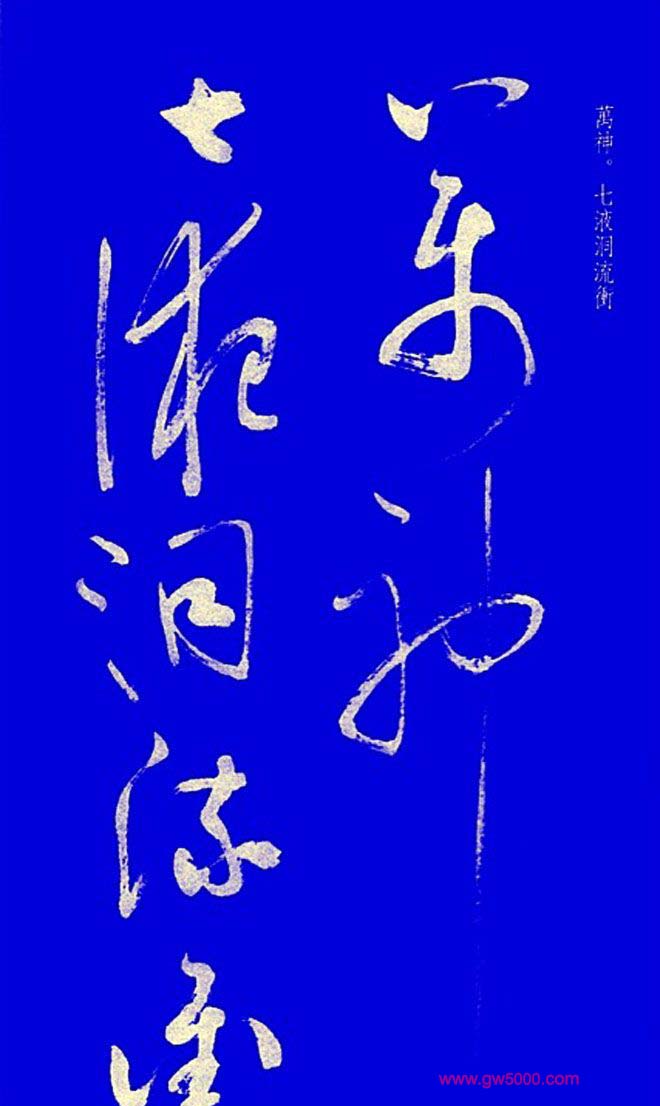 萬神。七液洞流衝
萬神
七液洞流衝
www.gw5000.com